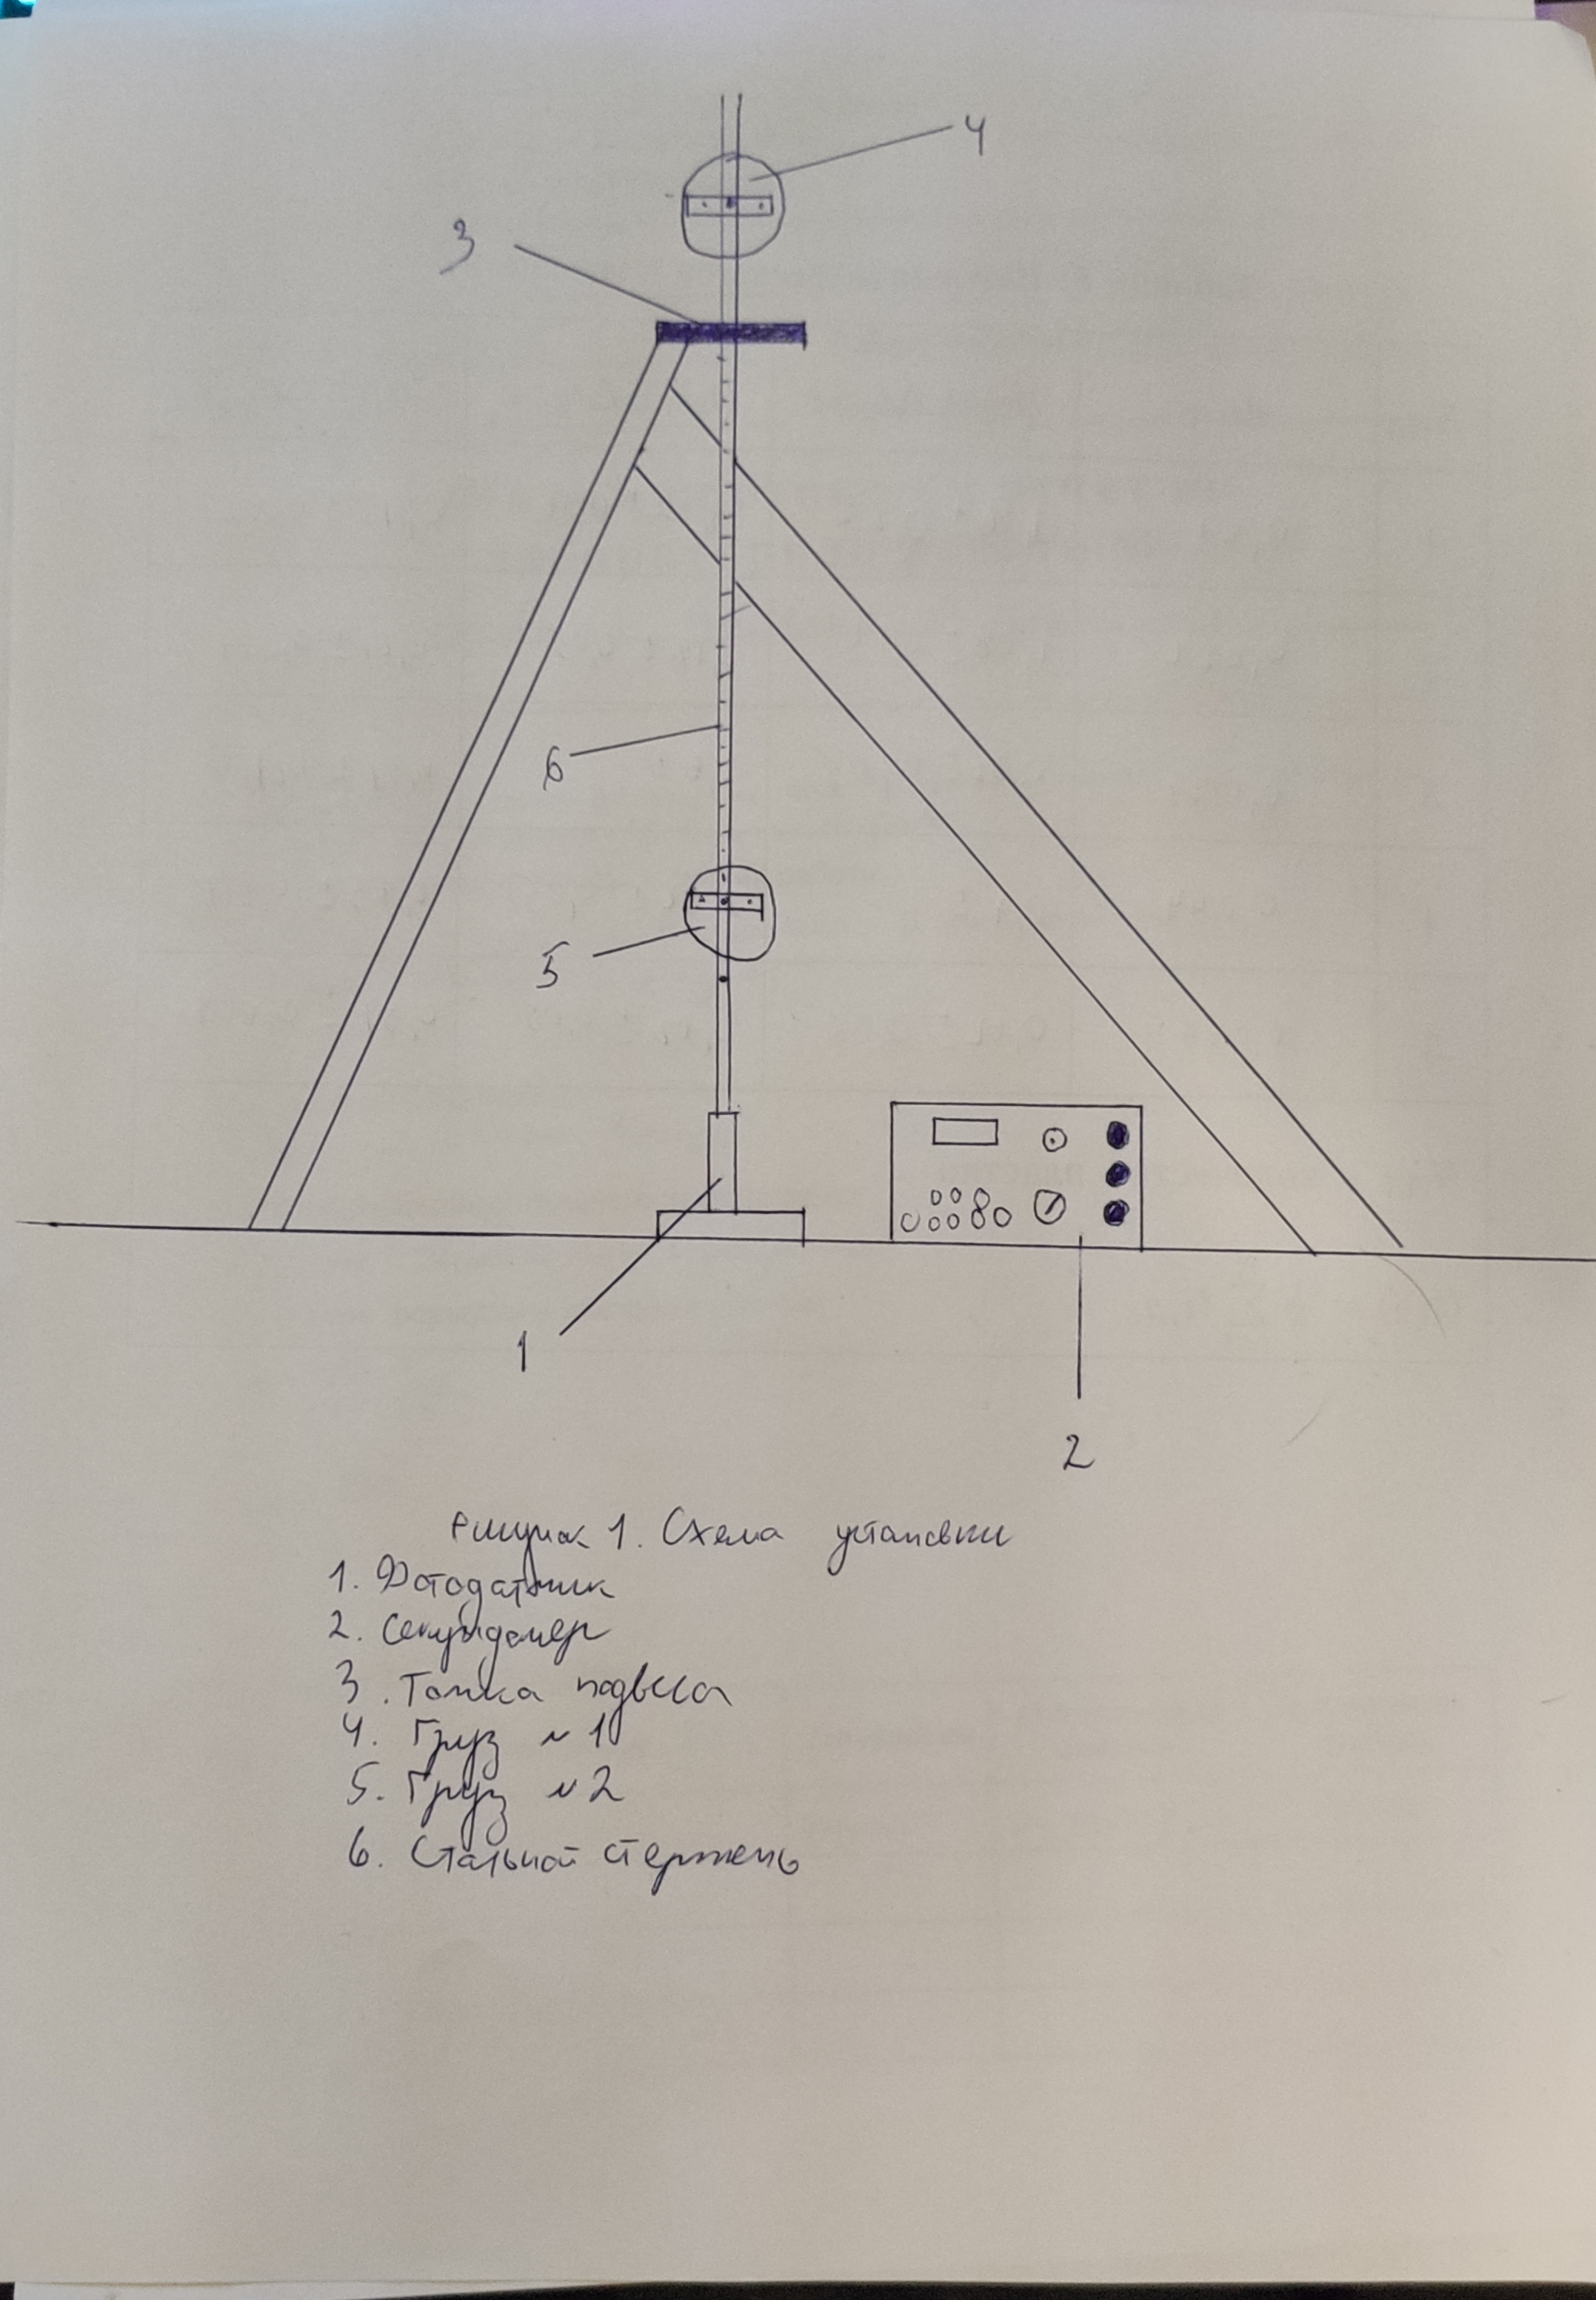 4
3
6
5
1
2
Рисунок 1. Схема установки
1. Фотодатчик
2. Секундомер
3. Точка подвеса
4. Груз №1
5. Груз №2
6. Стальной стержень